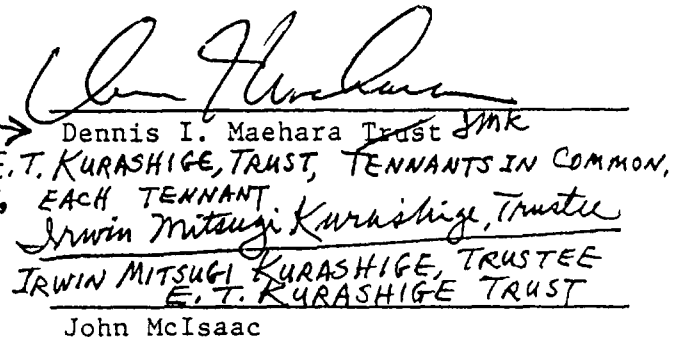 Dennis I. Maehara Trust
E.T. KURASHIGE, TRUST, TENNANTS IN COMMON,
, EACH TENNANT
Irwin Mitsugi Kurashige, Trustee
IRWIN MITSUGI KURASHIGE, TRUSTEE
E. T. KURASHIGE TRUST
John McIsaac